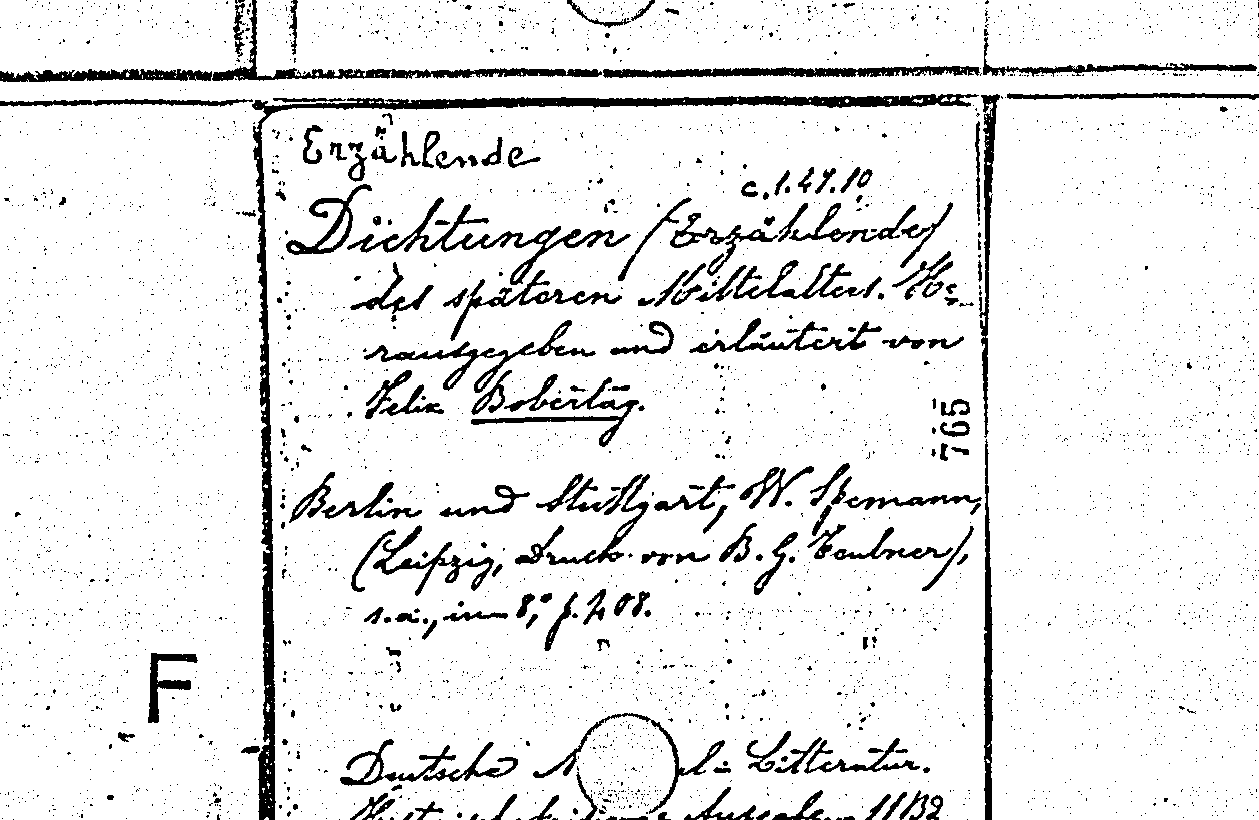 Erzählende
c.1.47.10
Dichtungen (Erzählende)
des späteren Mittelalters. He-
rausgegeben und erläutert von
Felix Bobertag.
765
Berlin und Stuttgart, W. Spemann,
(Leipzig, Druck von B. G. Teubner),
s.a., in 8°, f. 408.
F
Deutsche N l- Litteratur.
Ausgabe 11/32